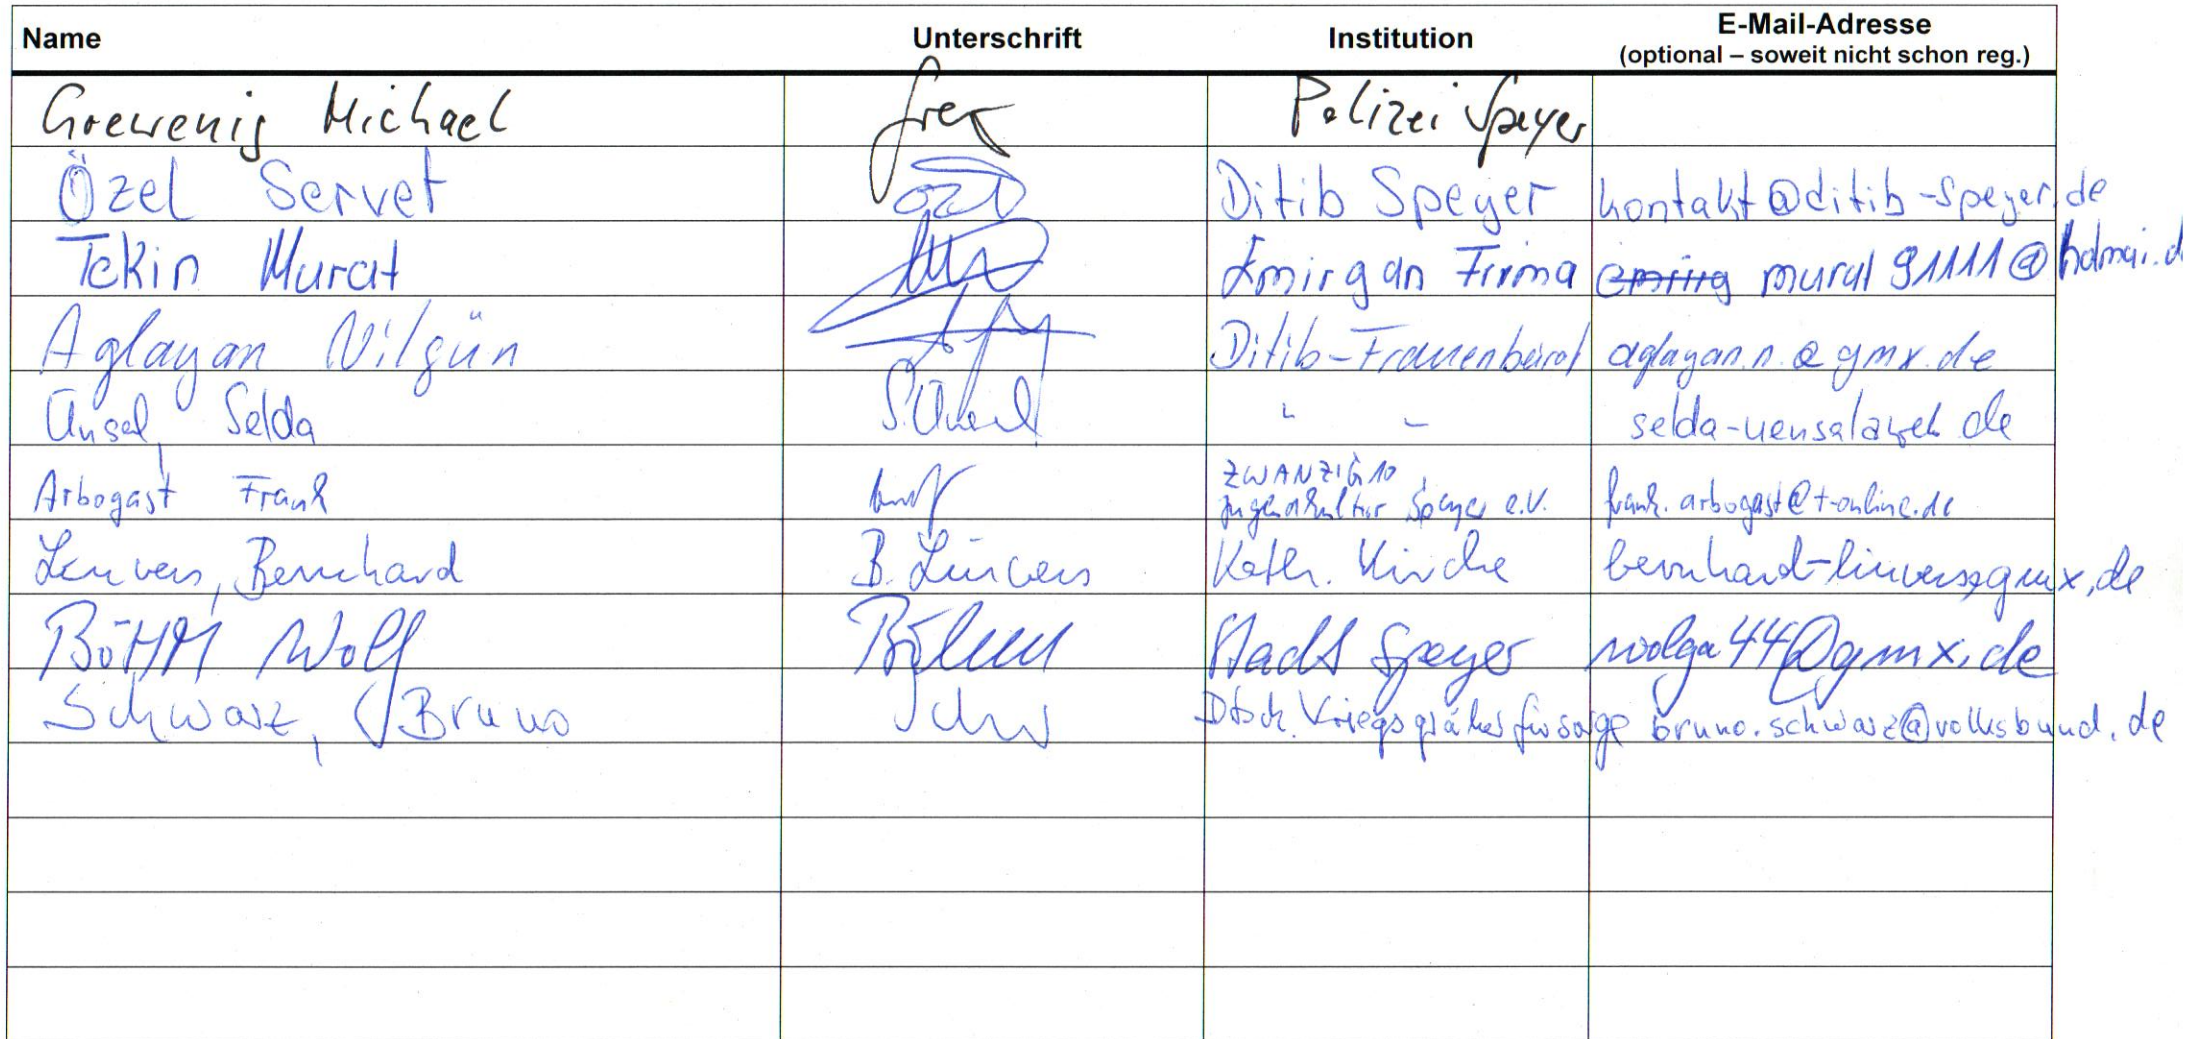 Name Unterschrift Institution E-Mail-Adresse
(optional – soweit nicht schon reg.)
Grewenig Michael Polizei Speyer
Özel Servet Ditib Speyer kontakt@ditib-speyer.de
Tekin Murat Emirgan Firma murat 91111@
Aglayan Nilgün Ditib-Frauenbeirat aglayan.n.@gmx.de
Ünsal, Selda S. Ünsal " "
ZWANZIG10
Arbogast Frank Jugendkultur Speyer e.V. frank.arbogast@t-online.de
Bernhard B. Kath. Kirche
BÖHM Wolf Böhm Stadt Speyer wolga44@gmx.de
Schwarz, Bruno Schw Dtsch. Kriegsgräberfürsorge bruno.schwarz@volksbund.de